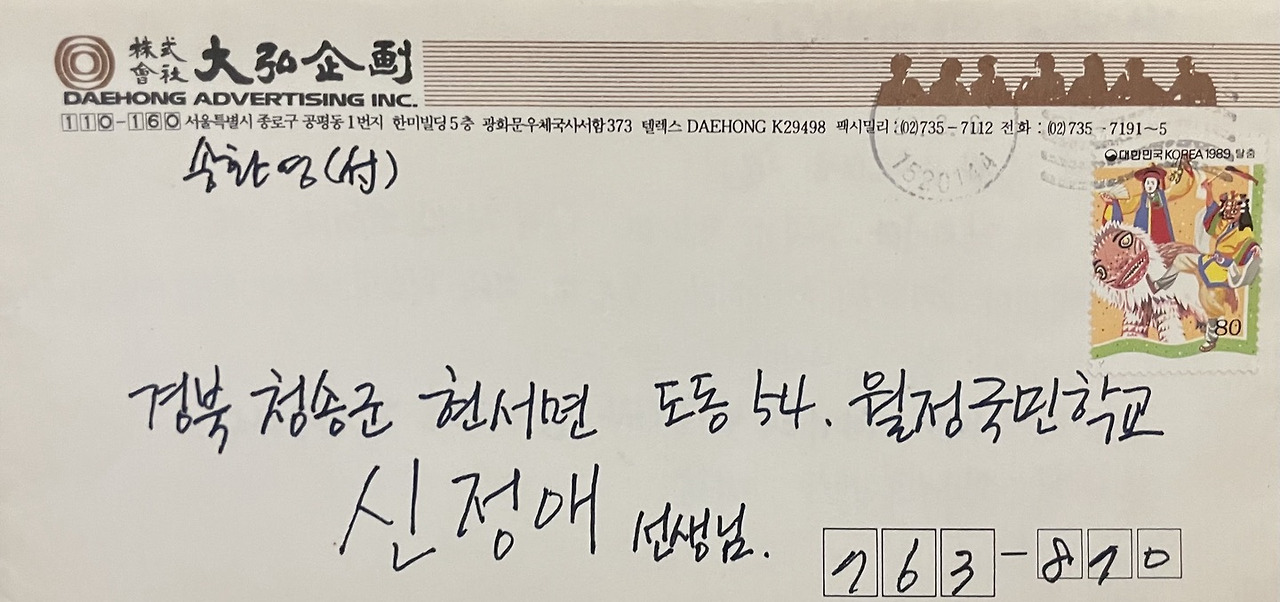 株式會社 大弘企画
DAEHONG ADVERTISING INC.
110-160 서울특별시 종로구 공평동 1번지 한미빌딩 5층 광화문우체국사서함 373 텔렉스 DAEHONG K29498 팩시밀리 : (02)735-7112 전화 : (02)735-7191~5
송한영(付)
1520144
대한민국 KOREA 1989 탈춤
80
경북 청송군 현서면 도동 54. 월정국민학교
신정애 선생님.
763-870